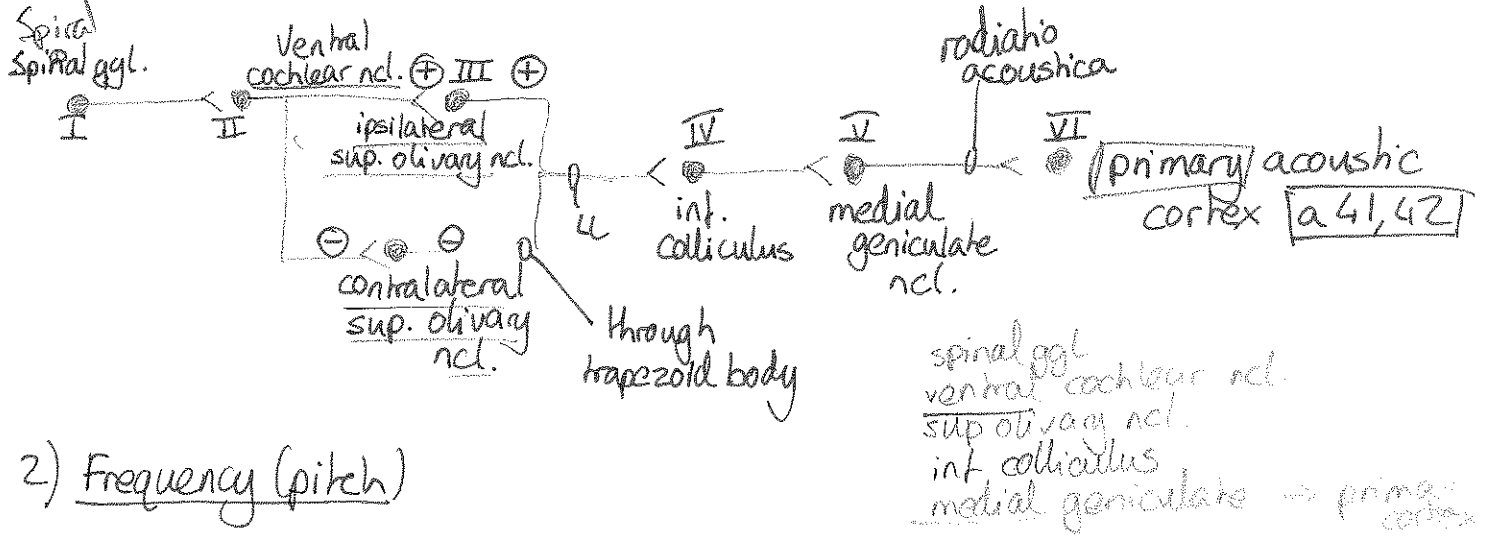 Spiral
Spiral ggl.
I
II
ventral
cochlear ncl.
⊕ III ⊕
ipsilateral
sup. olivary ncl.
⊖ ⊖
contralateral
sup. olivary
ncl.
through
trapezoid body
LL
IV
inf.
colliculus
V
medial
geniculate
ncl.
radiatio
acoustica
VI
primary acoustic
cortex a 41, 42
spinal ggl
ventral cochlear ncl.
sup olivary ncl.
inf colliculus
medial geniculate → prima
cortex
2) Frequency (pitch)